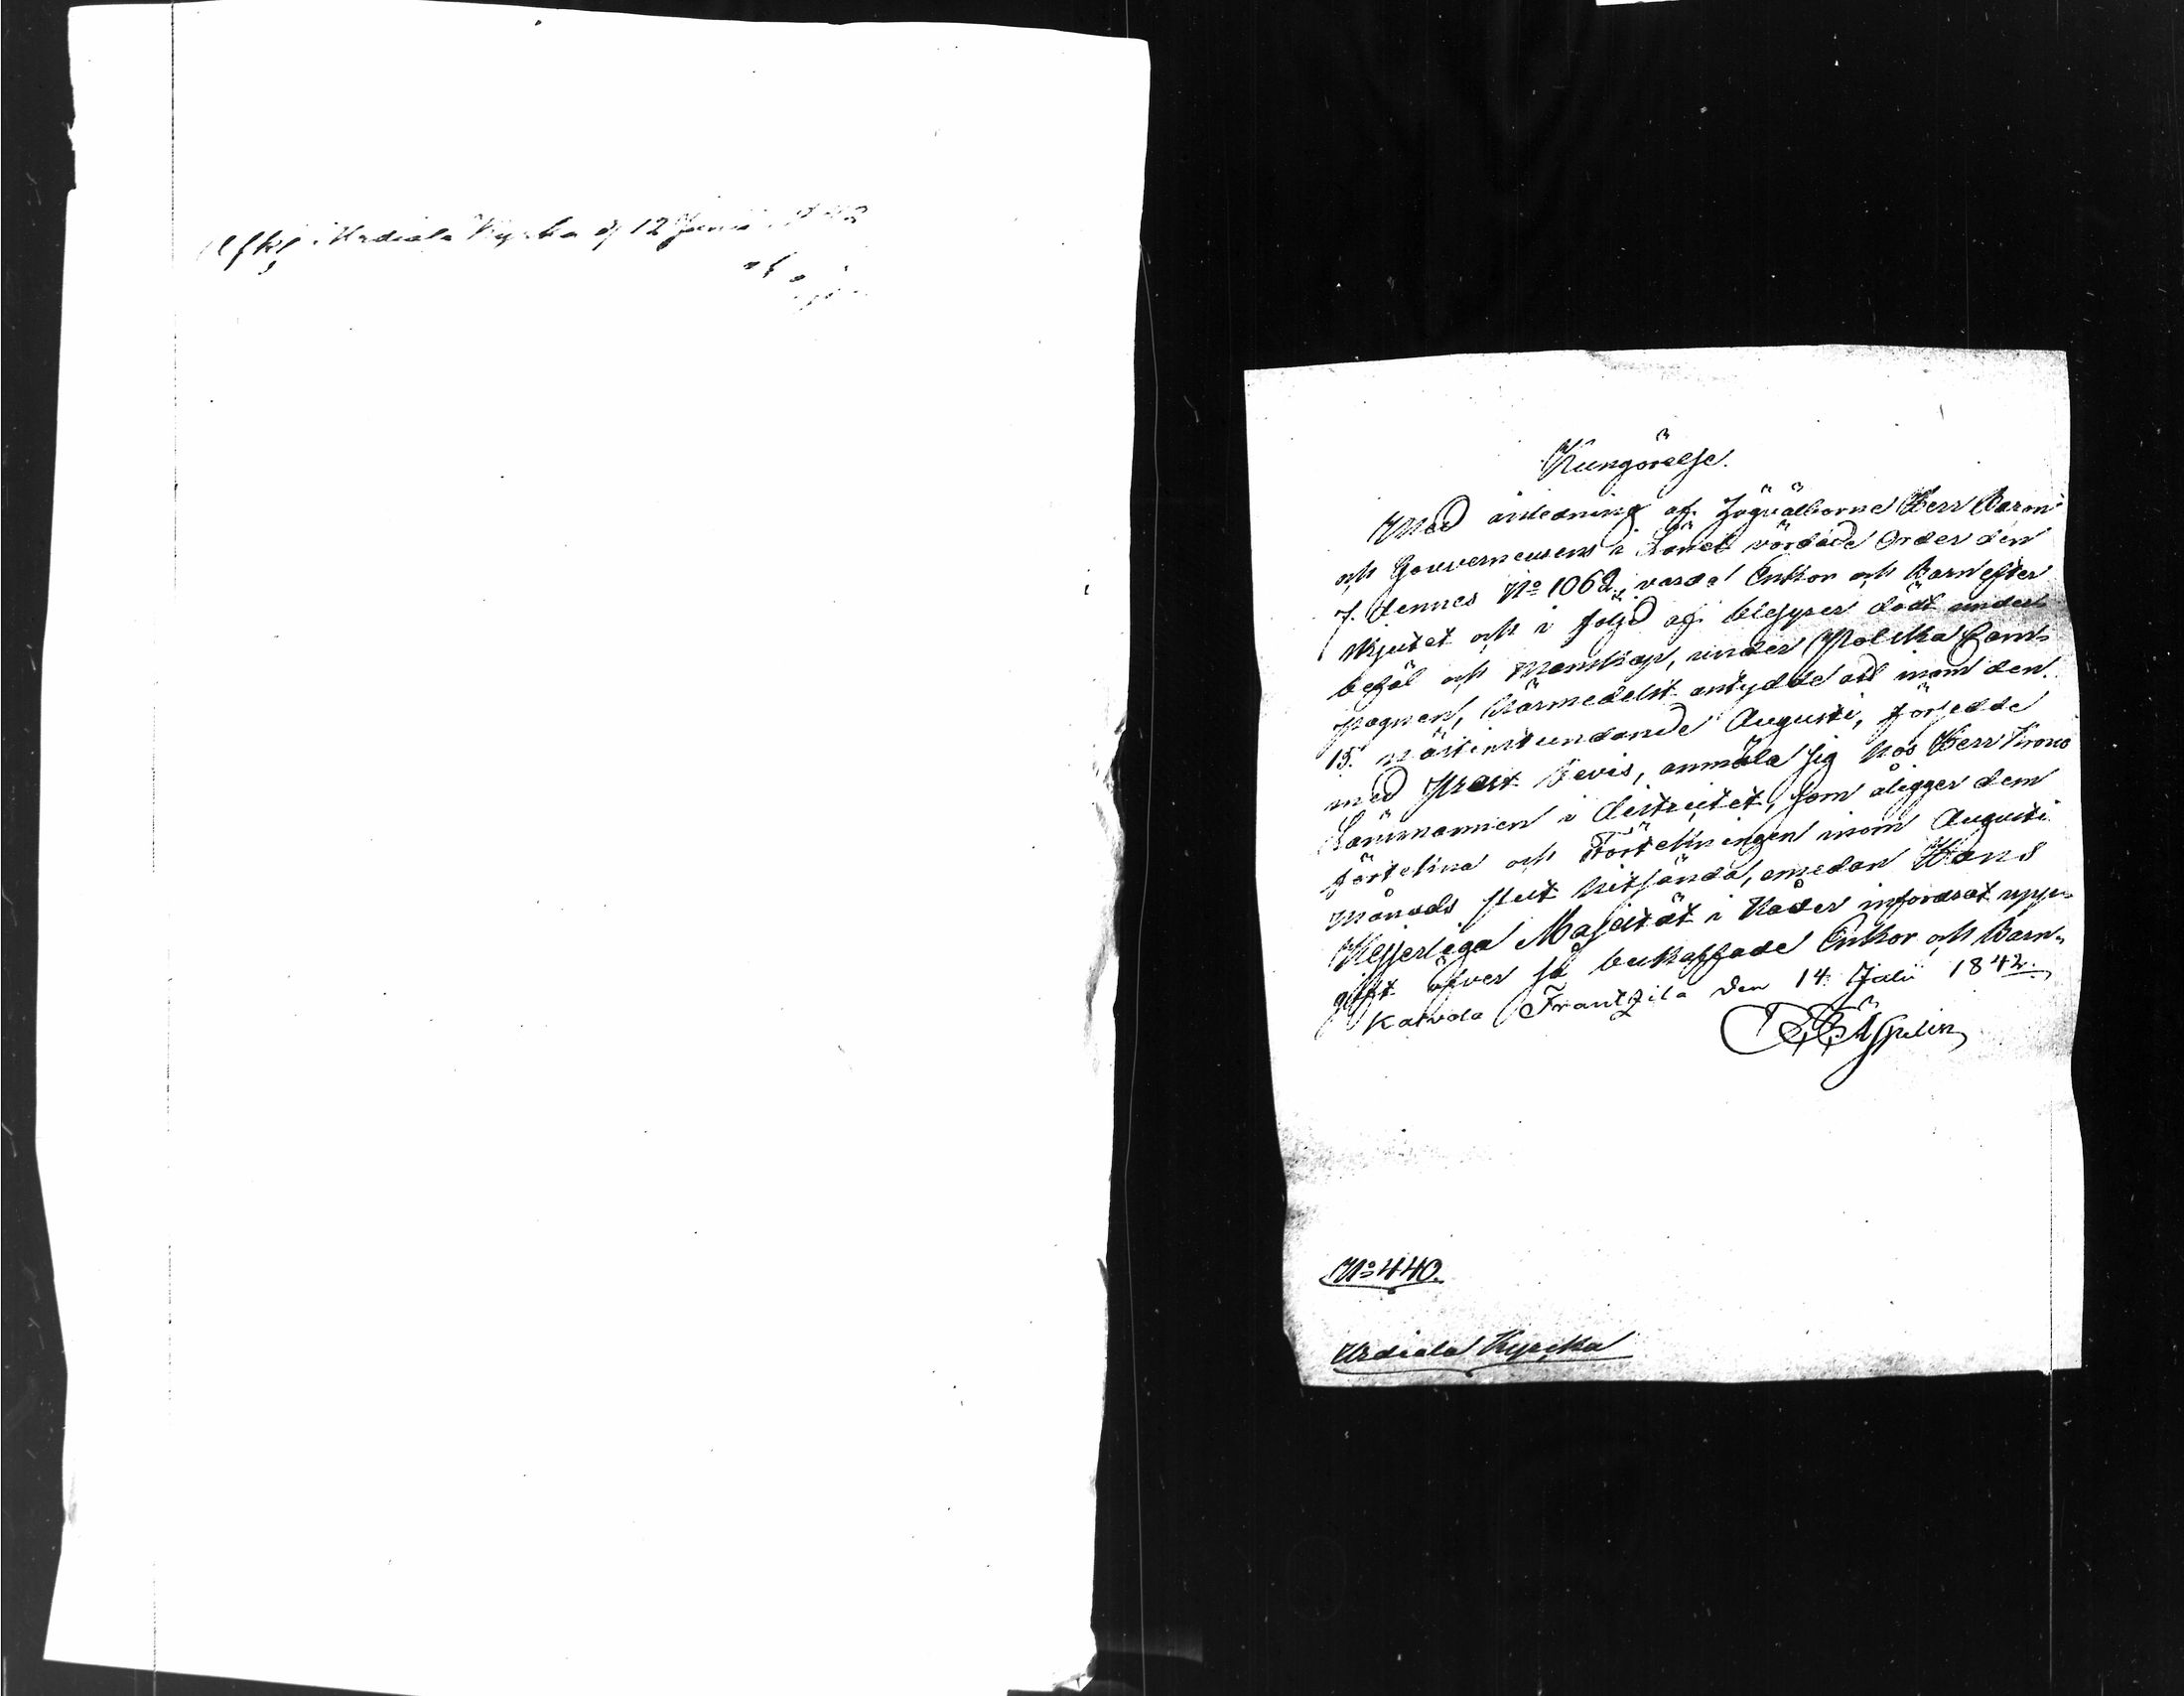 Afk: i Urdiala Kyrka d 12 Junii
Kungörelse.
Med anledning af Högvälborne Herr Baron
och Gouverneurens i Länet vördade Order den
7. dennes No 1062., varda Enkor och Barn efter
skjutet och i följd af blessyrer dödt under-
befäl och Manskap, under Polska Cam-
pagnen, härmedelst antydde att inom den
15. nästinstundande Augusti, försedde
med Prest bevis, anmäla sig hos Herr Krono
Länsmannen i districtet, som åligger dem
förtekna och Förtekningen inom Augusti
månads slut hitsända, emedan Hans
Kejserliga Majestät i Nåder infordrat upp-
gift öfver så beskaffade Enkor och Barn.
Kalvola Frantzila den 14. Julii 1842.
Äspelin
No 440.
Urdiala Kyrcka